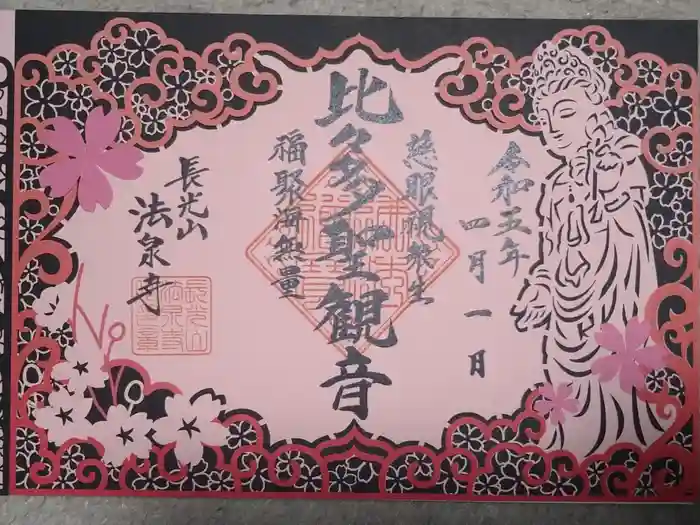 令和五年
四月一日
慈眼視衆生
比々多聖観音
福聚海無量
長光山
法泉寺